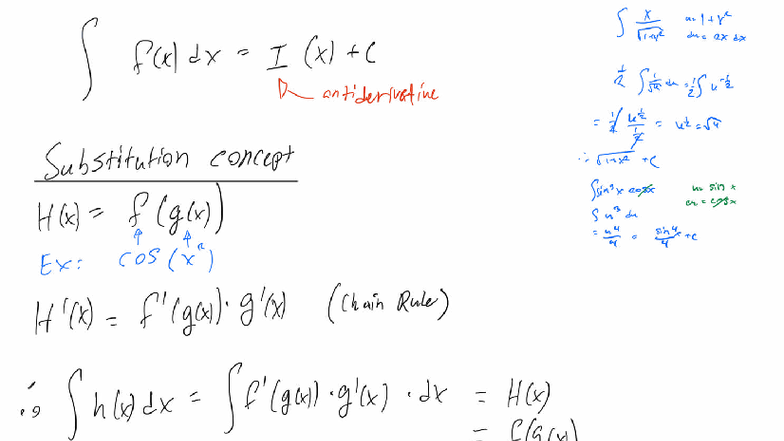 ∫ f(x) dx = I (x) + C
antiderivative
Substitution concept
H(x) = f(g(x))
Ex: cos(x²)
H'(x) = f'(g(x)) · g'(x) (Chain Rule)
∴ ∫ h(x) dx = ∫ f'(g(x)) · g'(x) · dx = H(x)
= f(g(x)
∫ x/√(1+x²) u = 1 + x²
du = 2x dx
1/2 ∫ 1/√u du = 1/2 ∫ u^(-1/2)
= 1/2 u^(1/2)/(1/2) = u^(1/2) = √u
∴ √(1+x²) + C
∫ sin³x cosx u = sin x
du = cosx
∫ u³ du
= u⁴/4 = sin⁴x/4 + C